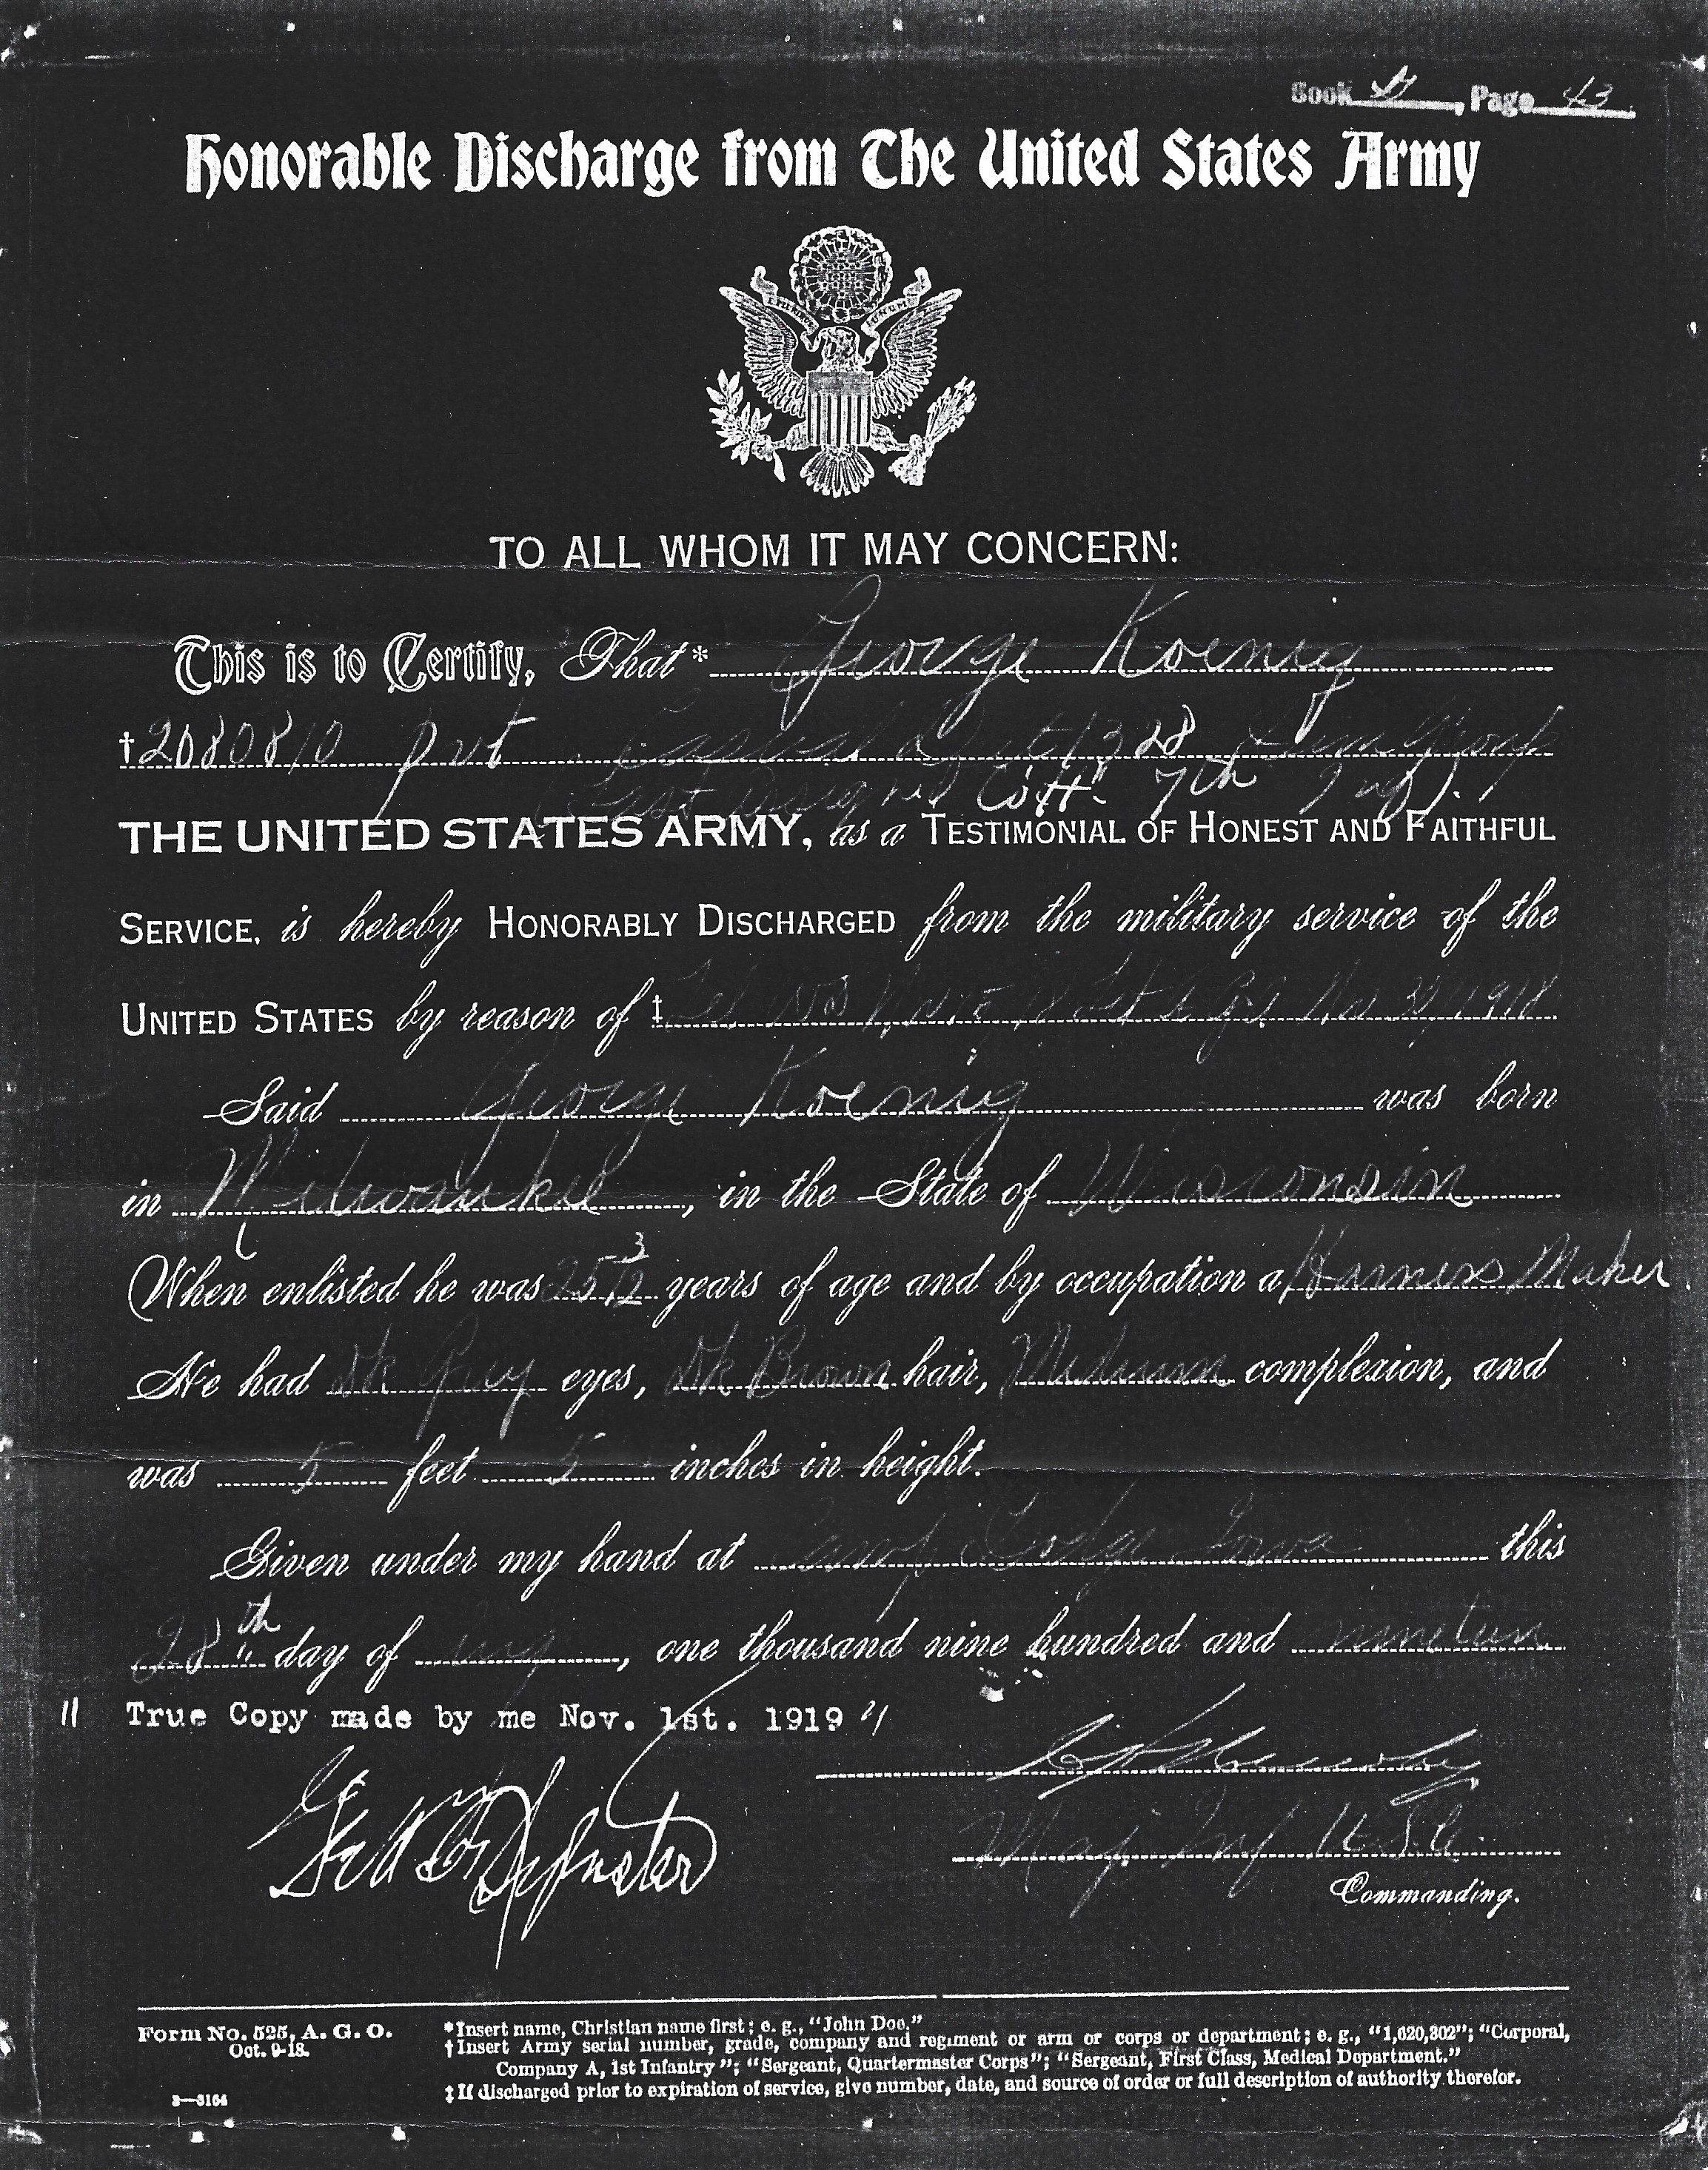 Book, Page 43
Honorable Discharge from The United States Army
TO ALL WHOM IT MAY CONCERN:
This is to Certify, That* George Koenig
†2080810 Pvt Casual Det 1328 Dem Group
(Last assigned Co "H" 7th Inf).
THE UNITED STATES ARMY, as a TESTIMONIAL OF HONEST AND FAITHFUL
SERVICE, is hereby HONORABLY DISCHARGED from the military service of the
UNITED STATES by reason of ‡ 1918
Said George Koenig was born
in Milwaukee, in the State of Wisconsin
When enlisted he was 25 3/12 years of age and by occupation a Harness Maker
He had Dk Grey eyes, Dk Brown hair, Medium complexion, and
was 5 feet 5 inches in height.
Given under my hand at Camp Dodge Iowa this
28th day of Aug, one thousand nine hundred and nineteen
" True Copy made by me Nov. 1st. 1919 "
Maj. Inf. U.S.A.
Commanding.
Form No. 525, A. G. O.
Oct. 9-18.
3—3164
*Insert name, Christian name first; e. g., "John Doe."
†Insert Army serial number, grade, company and regiment or arm or corps or department; e. g., "1,620,302"; "Corporal,
Company A, 1st Infantry"; "Sergeant, Quartermaster Corps"; "Sergeant, First Class, Medical Department."
‡If discharged prior to expiration of service, give number, date, and source of order or full description of authority therefor.